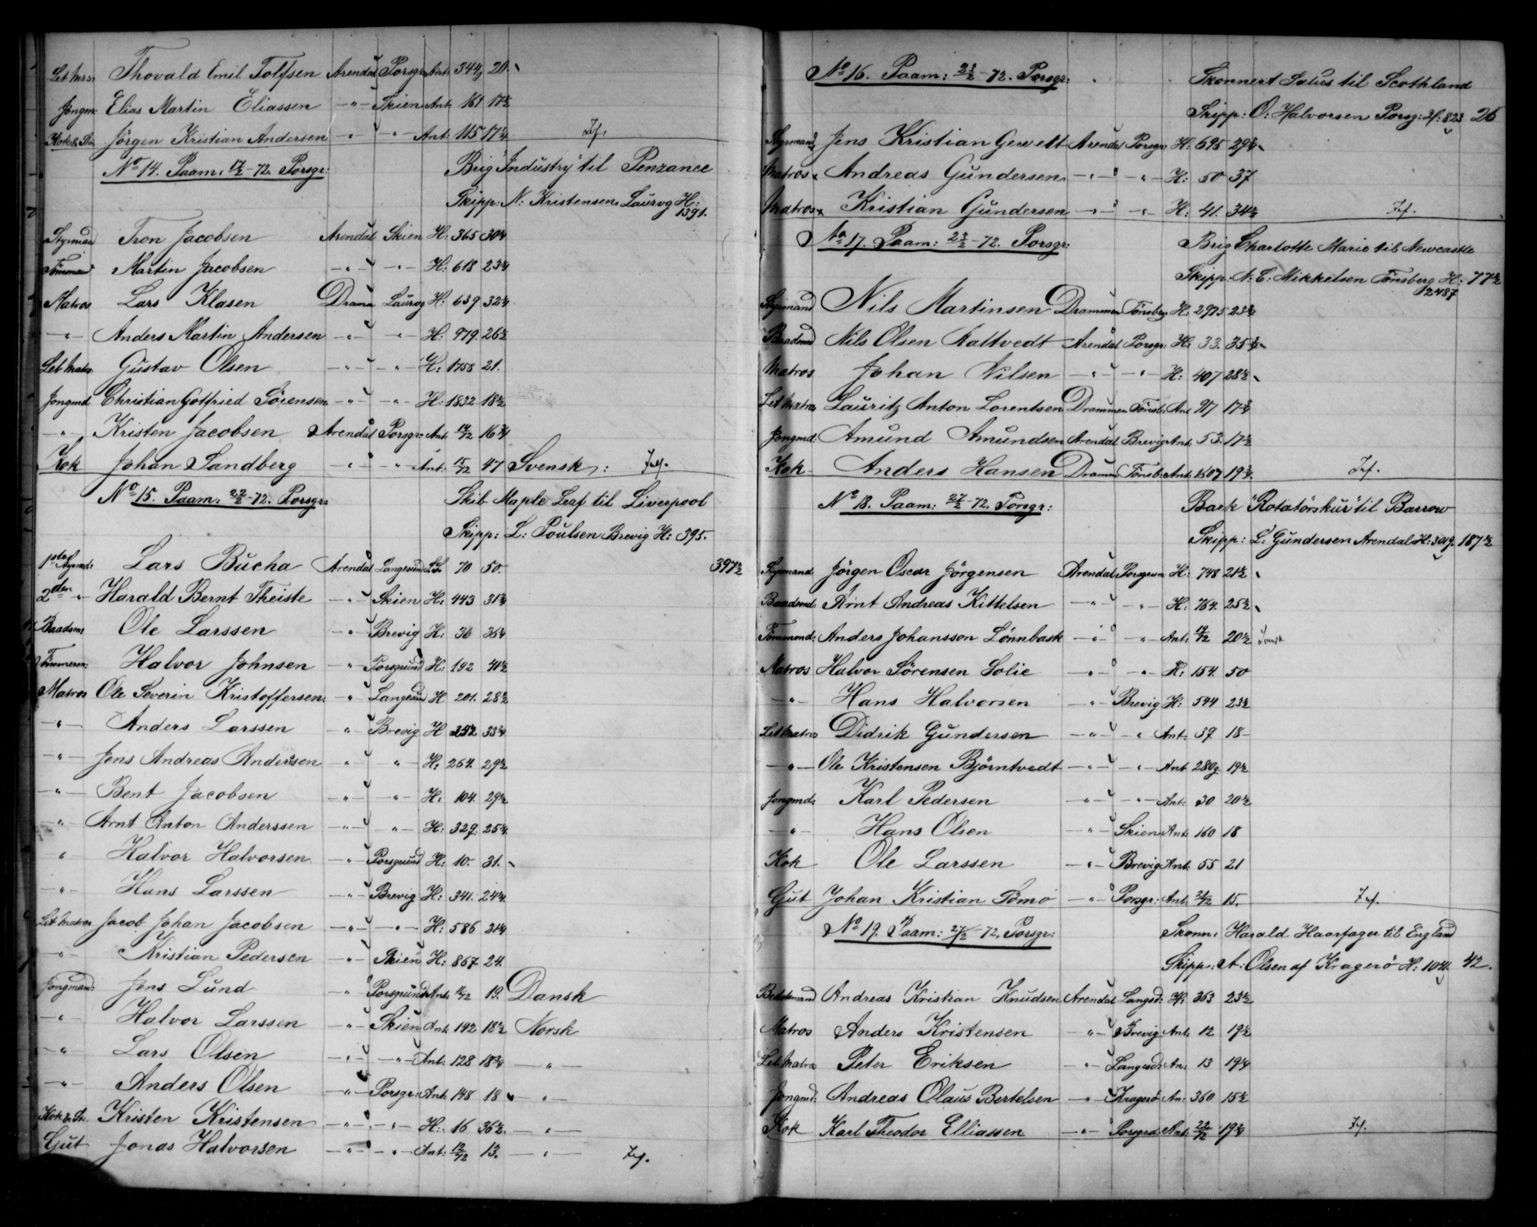 Let Mtrs. Thovald Emil Tolfsen Arendal Porsgr. Ant. 344 20.
Jongm. Elias Martin Eliassen -"- Skien Ant. 161 17½
Kok & St. Jörgen Kristian Andersen -"- -"- Ant. 115 17¼
No 14. Paam: -72. Porsgr: Brig "Industry" til Penzance
Skipp: N. Kristensen Laurvg H: 1391.
Styrmand Tron Jacobsen Arendal Skien H: 365 30¼
Tömmend Martin Jacobsen -"- -"- H: 618 23¼
Matros Lars Klasen Dram Laurvg H: 639 32¼
-"- Anders Martin Andersen -"- " H: 979 26½
Let Matr. Gustav Olsen -"- -"- H: 1758 21.
Jongmd. Christian Gotfried Sörensen -"- -"- H: 1832 18½
-"- Kristen Jacobsen Arendal Porsgr. Ant. 16¼
Kok Johan Sandberg -"- " Ant. 47 Svensk:
No 15. Paam: -72. Porsgr: Skib Maple Leaf til Liverpool
Skipp: L. Poulsen Brevig H: 395.
1ste Styrmd: Lars Bucha Arendal Langesund 70 50. 397½
2den -"- Harald Bernt Theiste -"- Skien H: 443 31¾
Baadsm. Ole Larssen -"- Brevig H: 36 35¼
Tömmerm. Halvor Johnsen -"- Porsgrund H: 192 41½
Matros Ole Severin Kristoffersen -"- Langesund H 201. 28½
-"- Anders Larssen -"- Brevig H 352. 33¼
-"- Jens Andreas Andersen -"- " H: 264. 29½
-"- Bent Jacobsen -"- -"- H: 104. 29½
-"- Arnt Anton Anderssen -"- " H: 329. 25¼
" Halvor Halvorsen -"- Porsgrund H: 10. 31.
-"- Hans Larssen -"- Brevig H: 341. 24¼
Let Matros Jacob Johan Jacobsen -"- -"- H: 586 21¼
-"- Kristian Pedersen -"- Skien H: 867 24.
Jongmand Jens Lund " Porsgrund Ant. 19. Dansk
-"- Halvor Larssen -"- Skien Ant. 142 18½ Norsk
-"- Lars Olsen -"- -"- Ant: 128 18¾ -"-
-"- Anders Olsen -"- Porsgr: Ant. 148 18 -"-
Kok & St. Kristen Kristensen -"- -"- H: 16 36½ -"-
Gut Jonas Halvorsen -"- -"- Ant: 12/72 13. -"-
No 16. Paam: -72. Porsgr: Skonnert til Scothland
Skipp: O. Halvorsen Porsg: H: 823 26
Styrmand Jens Kristian Gewelt Arendal Porsgr. H: 695 29¾
Matros Andreas Gundersen -"- -"- H: 50 37
Matros Kristian Gundersen -"- -"- H: 41. 34¾
No 17. Paam: -72. Porsgr: Brig Charlotte Marie til Newcastle
Skipp. N. C. Mikkelsen Tönsberg H: 2487 77½
Styrmand Nils Martinsen Drammen Tönsbrg H: 2975 23¾
Baadsmd Nils Olsen Aaltvedt Arendal Porsgr. H: 33. 35¾
Matros Johan Nilsen -"- -"- H: 407 28¾
Let Matros Lauritz Anton Lorentsen Drammen Tönsb. Ant. 97 17¾
Jongmd. Amund Amundsen Arendal Brevig Ant. 53. 17½
Kok Anders Hansen Dramm Tönsb. Ant. 1607 19¼
No 18. Paam: -72. Porsgr: Bark "Rotatörskur" til Barrow
Skipp: L: Gundersen Arendal H: 187½
Styrmand Jörgen Oscar Jörgensen Arendal Porsgrun H: 748 21½
Baadsmd. Arnt Andreas Kittelsen -"- -"- H: 764. 25½
Tömmermd: Anders Johansson Lönnbask -"- " Ant: 20½
Matros Halvor Sörensen Solie -"- -"- H: 154. 50
-"- Hans Halvorsen -"- Brevig H: 544 23½
Let Matros Didrik Gundersen -"- " Ant: 39 18
-"- Ole Kristensen Björntvedt -"- -"- Ant 19½
Jongmd: Karl Pedersen -"- -"- Ant: 30 20½
-"- Hans Olsen -"- Skien Ant: 160 18
Kok Ole Larssen -"- Brevig Ant: 55 21
Gut Johan Kristian Tömö -"- Porsgr: Ant: 15.
No 19. Paam: -72. Porsgr: Skonn: Harald Haarfager til England
Skipp: A: Olsen af Kragerö H: 42.
Bedstmand Andreas Kristian Knudsen Arendal Langsd: H: 363 23½
Matros Anders Kristensen " Brevig Ant: 12 19½
Let Matros Peter Eriksen -"- Langesd: An: 13 19¾
Jongmd. Andreas Olaus Bertelsen -"- Kragerö An: 360 15½
Kok Karl Theodor Elliassen -"- Porsgrd. Ant: 22/72 19¾